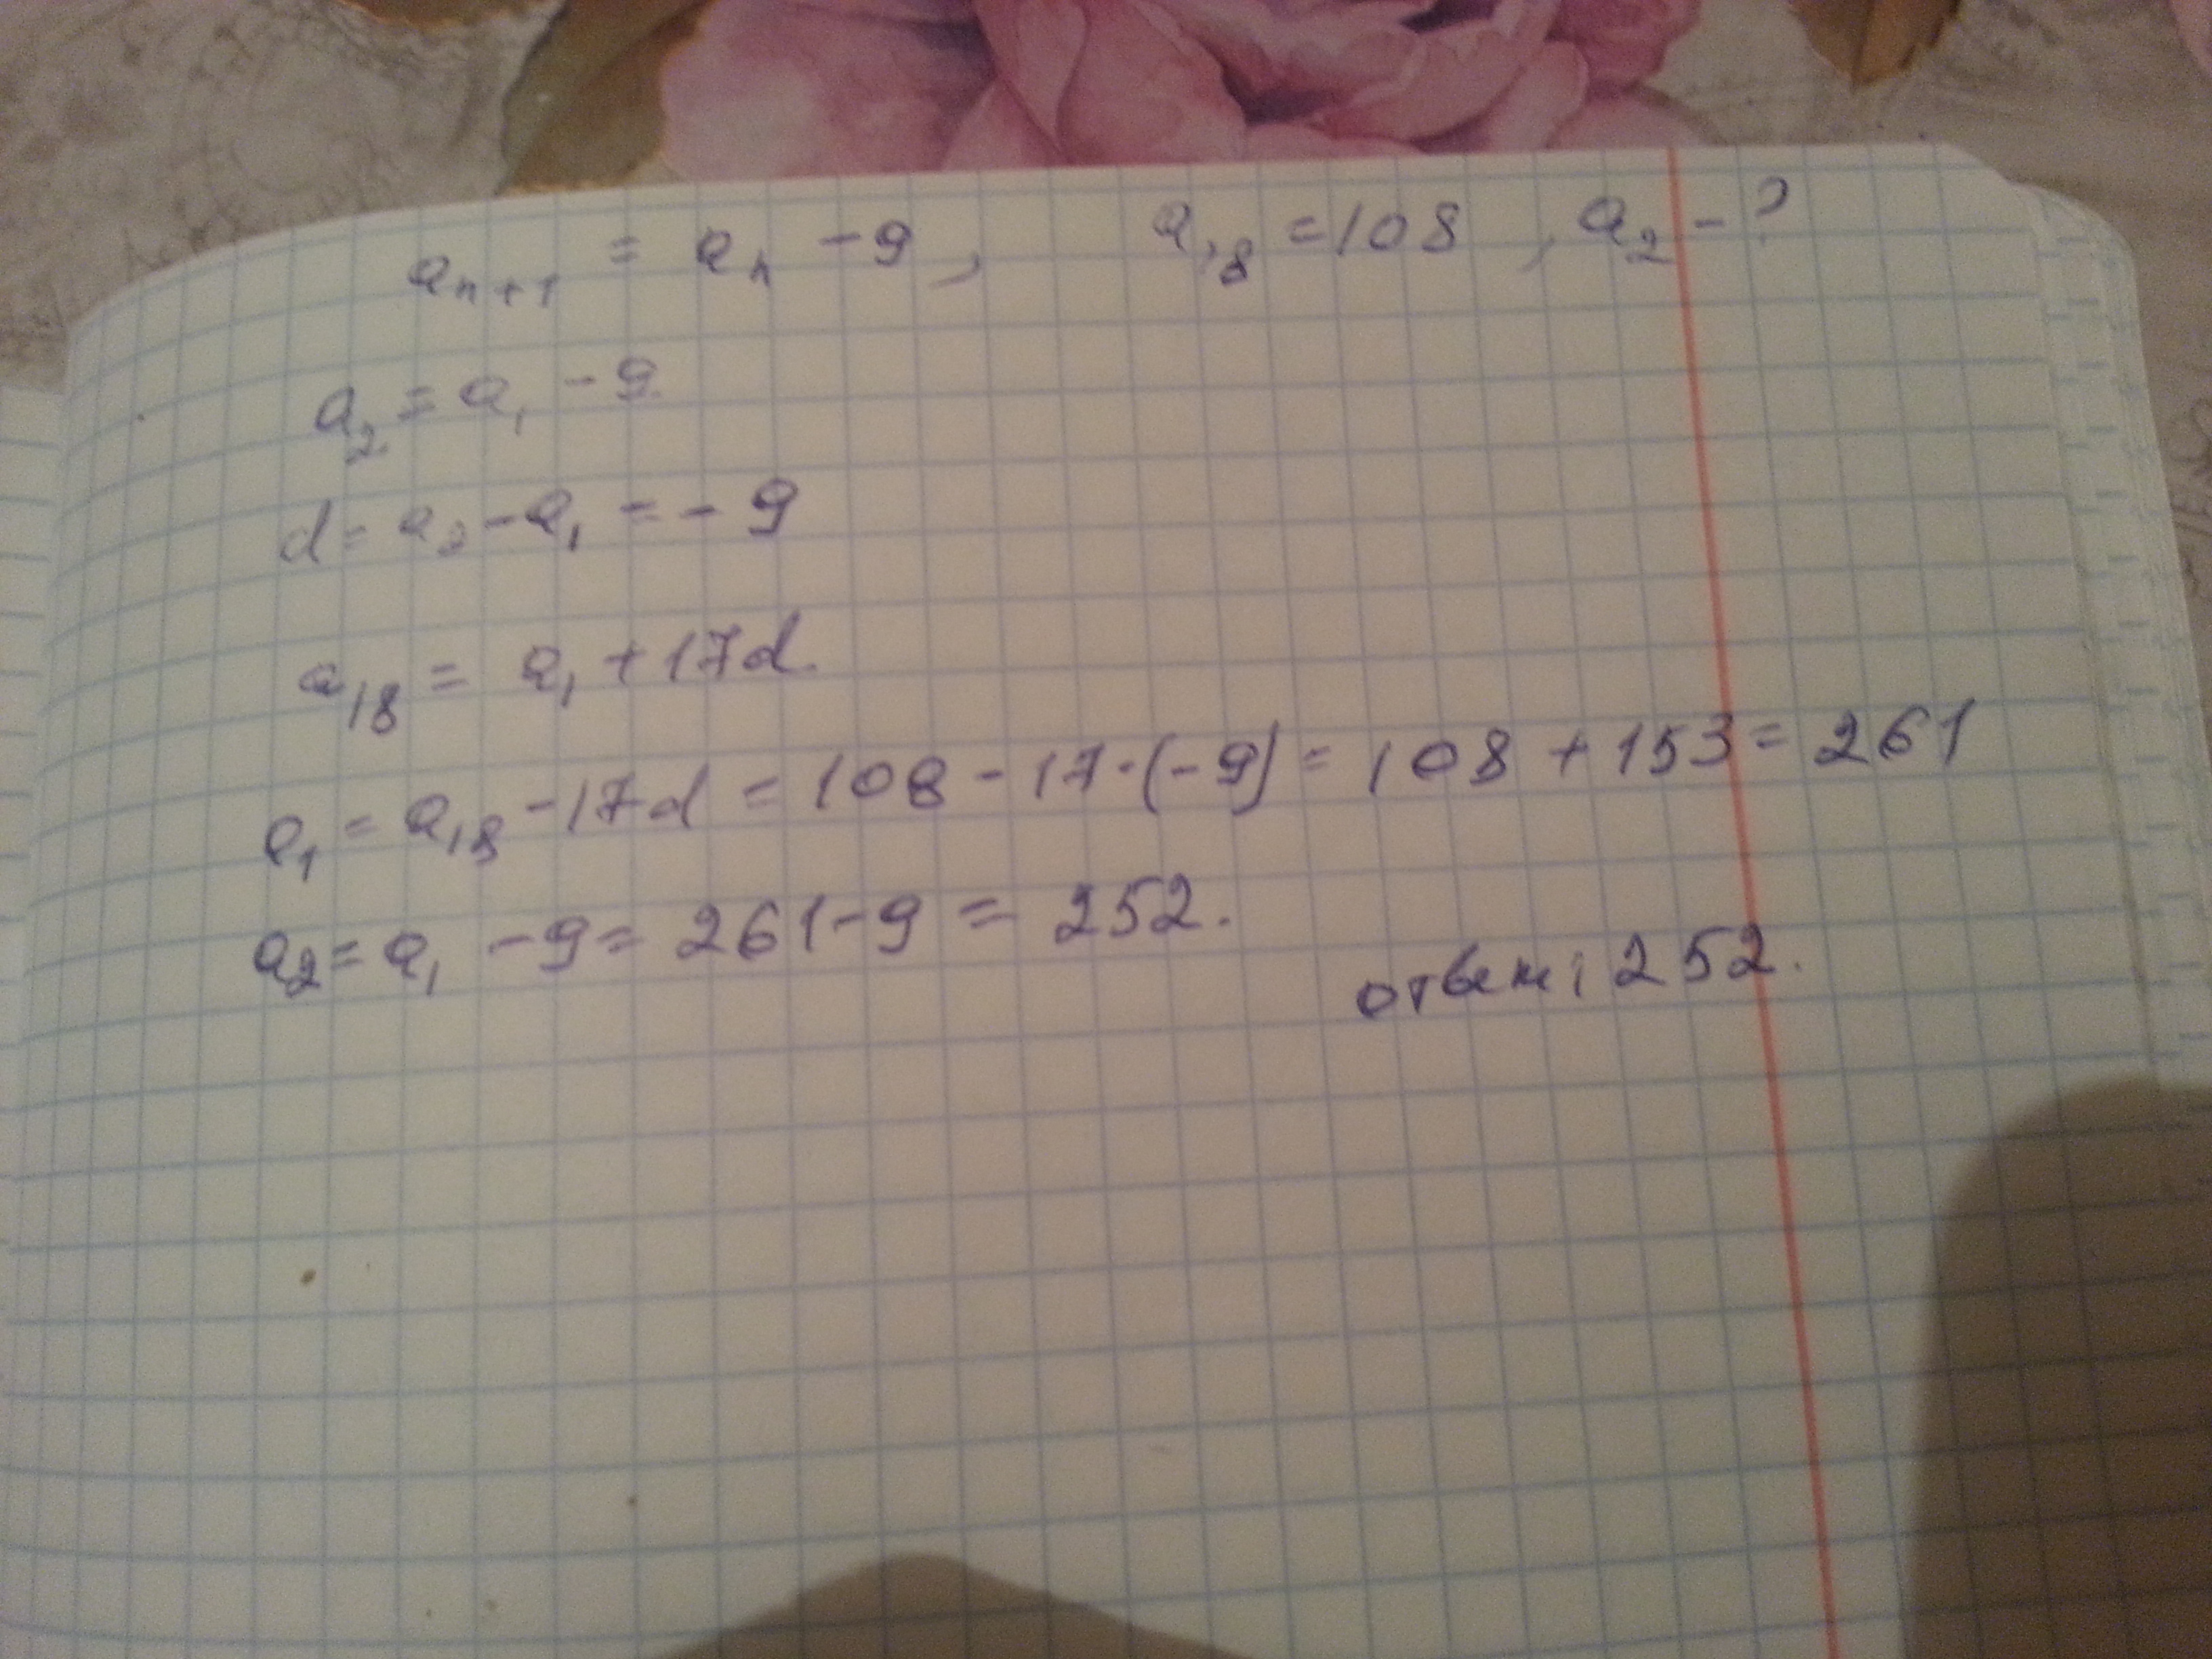 aₙ₊₁ = aₙ - 9, a₁₈ = 108, a₂ - ?
a₂ = a₁ - 9
d = a₂ - a₁ = - 9
a₁₈ = a₁ + 17d.
a₁ = a₁₈ - 17d = 108 - 17·(-9) = 108 + 153 = 261
a₂ = a₁ - 9 = 261 - 9 = 252.
ответ: 252.